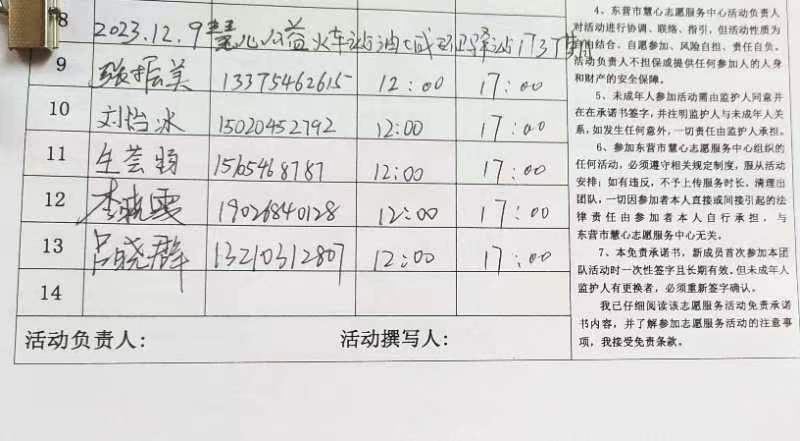 8
2023.12.9慧心公益火车站油城环卫驿站1737期
9 张振美 13375462615 12:00 17:00
10 刘怡冰 15020452792 12:00 17:00
11 生芸 15654687187 12:00 17:00
12 李晓霞 19026840128 12:00 17:00
13 吕晓群 13210312807 12:00 17:00
14
活动负责人: 活动撰写人:
4、东营市慧心志愿服务中心活动负责人
对活动进行协调、联络、指引，但活动性质为
自由结合、自愿参加、风险自担、责任自负。
活动负责人不担保或提供任何参加人的人身
和财产的安全保障。
5、未成年人参加活动需由监护人同意并
在在承诺书签字，并注明监护人与未成年人关
系，如发生任何意外，一切责任由监护人承担。
6、参加东营市慧心志愿服务中心组织的
任何活动，必须遵守相关规定制度，服从活动
安排；如有违反，不予上传服务时长，清理出
团队，一切因参加者本人直接或间接引起的法
律责任由参加者本人自行承担，与
东营市慧心志愿服务中心无关。
7、本免责承诺书，新成员首次参加本团
队活动时一次性签字且长期有效。但未成年人
监护人有更换者，必须重新签字确认。
我已仔细阅读该志愿服务活动免责承诺
书内容，并了解参加志愿服务活动的注意事
项，我接受免责条款。